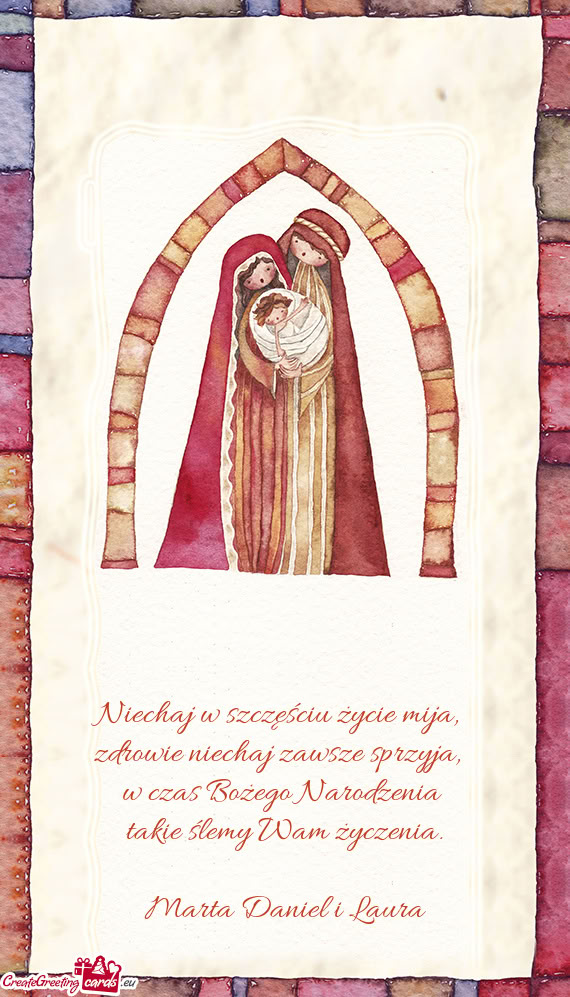 Niechaj w szczęściu życie mija,
zdrowie niechaj zawsze sprzyja,
w czas Bożego Narodzenia
takie ślemy Wam życzenia.
Marta Daniel i Laura
CreateGreeting cards .eu